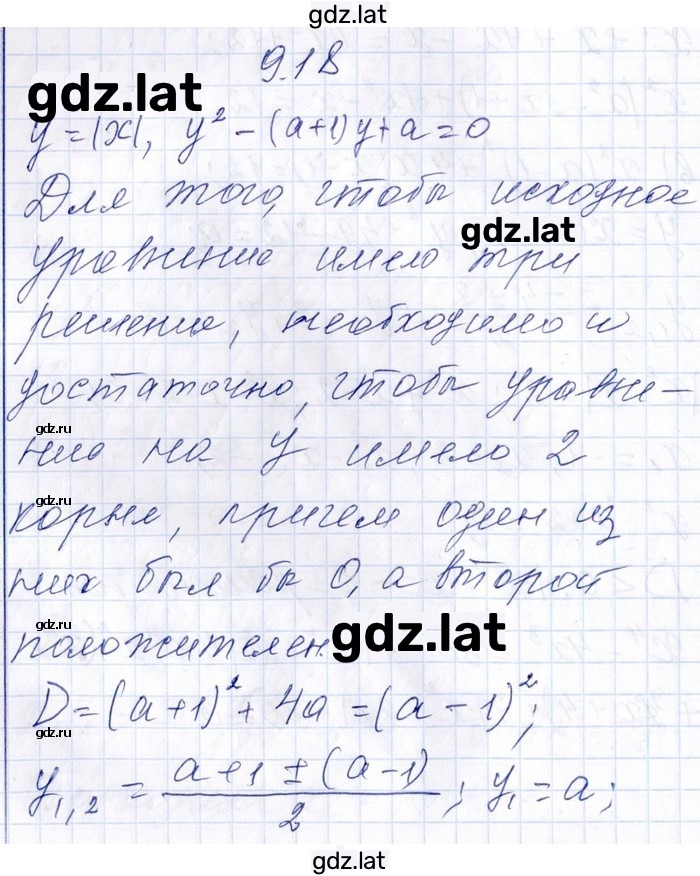 gdz.lat
9.18
gdz.lat
y = |x|, y² - (a+1)y + a = 0
Для того, чтобы исходное
gdz.lat
уравнение имело три
решения, необходимо и
достаточно, чтобы уравне-
gdz.ru
ние на y имело 2
gdz.ru
корня, причем один из
них был бы 0, а второй
положителен.
gdz.lat
D = (a+1)² + 4a = (a-1)²;
gdz.ru
y₁,₂ = (a+1 ± (a-1))/2 ; y₁ = a;
gdz.lat